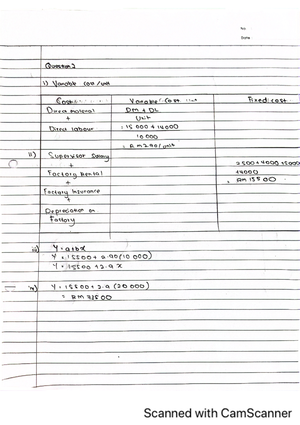 No.
Date
Question 2
i) Variable cost / unit
Cost Variable Cost / Unit Fixed cost
Direct material DM + DL
+ Unit
Direct labour = 15 000 + 14000
10 000
= RM 2.90/unit
ii) Supervisor Salary
+ 2500+4000+5000
Factory Rental +4000
+ = RM 15500
Factory Insurance
+
Depreciation on
Factory
iii) Y = a+bx
Y = 15500 + 2.90(10 000)
Y = 15500 + 2.9 x
iv) Y = 15500 + 2.9 (20 000)
= RM 73500
Scanned with CamScanner